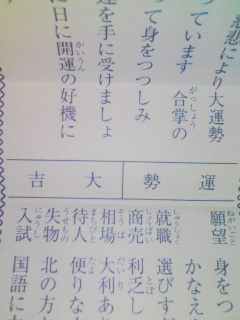 慈悲により大運勢
っています 合掌の
って身をつつしみ
運を手に受けましょ
に日に開運の好機に
運勢 大吉
願望 身をつ
かなえ
就職 選びす
商売 利乏し
相場 大利あ
待人 便りな
失物 北の方
入試 国語に